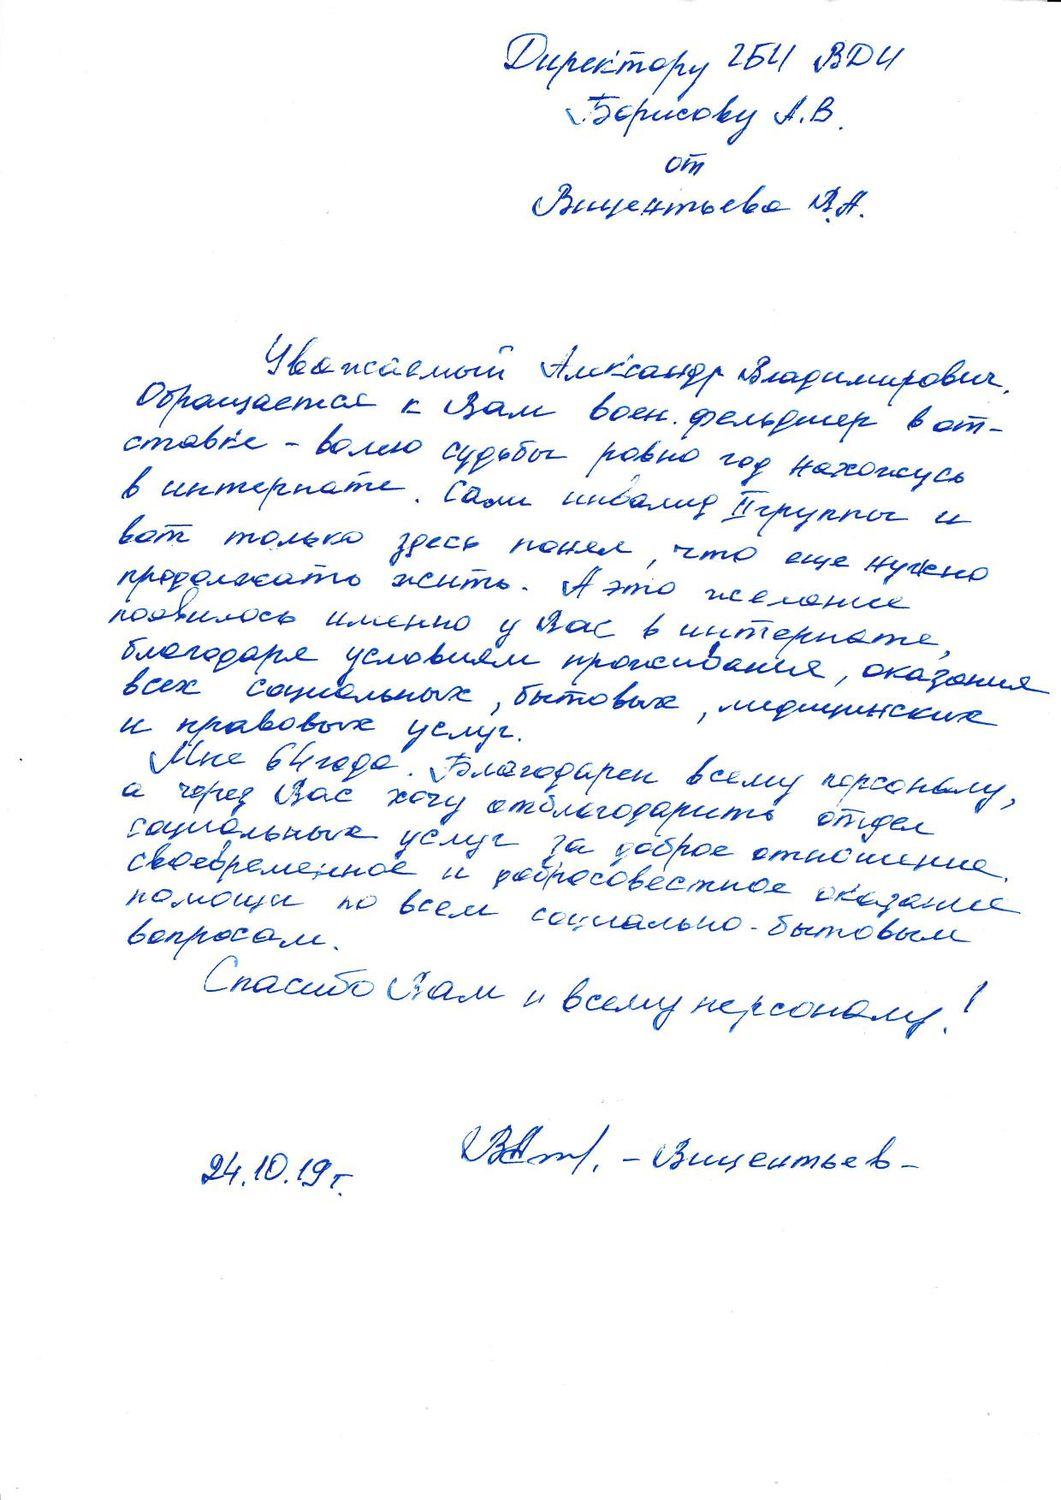 Директору ГБУ ВДИ
Борисову А.В.
от
Вицентьева В.А.
Уважаемый Александр Владимирович.
Обращается к Вам воен. фельдшер в от-
ставке – волею судьбы ровно год нахожусь
в интернате. Сам инвалид II группы и
вот только здесь понял, что еще нужно
продолжать жить. А это желание
появилось именно у Вас в интернате,
благодаря условиям проживания, оказания
всех социальных, бытовых, медицинских
и правовых услуг.
Мне 64 года. Благодарен всему персоналу,
а через Вас хочу отблагодарить отдел
социальных услуг за доброе отношение.
своевременное и добросовестное оказание
помощи по всем социально-бытовым
вопросам.
Спасибо Вам и всему персоналу!
24.10.19 г. – Вицентьев –